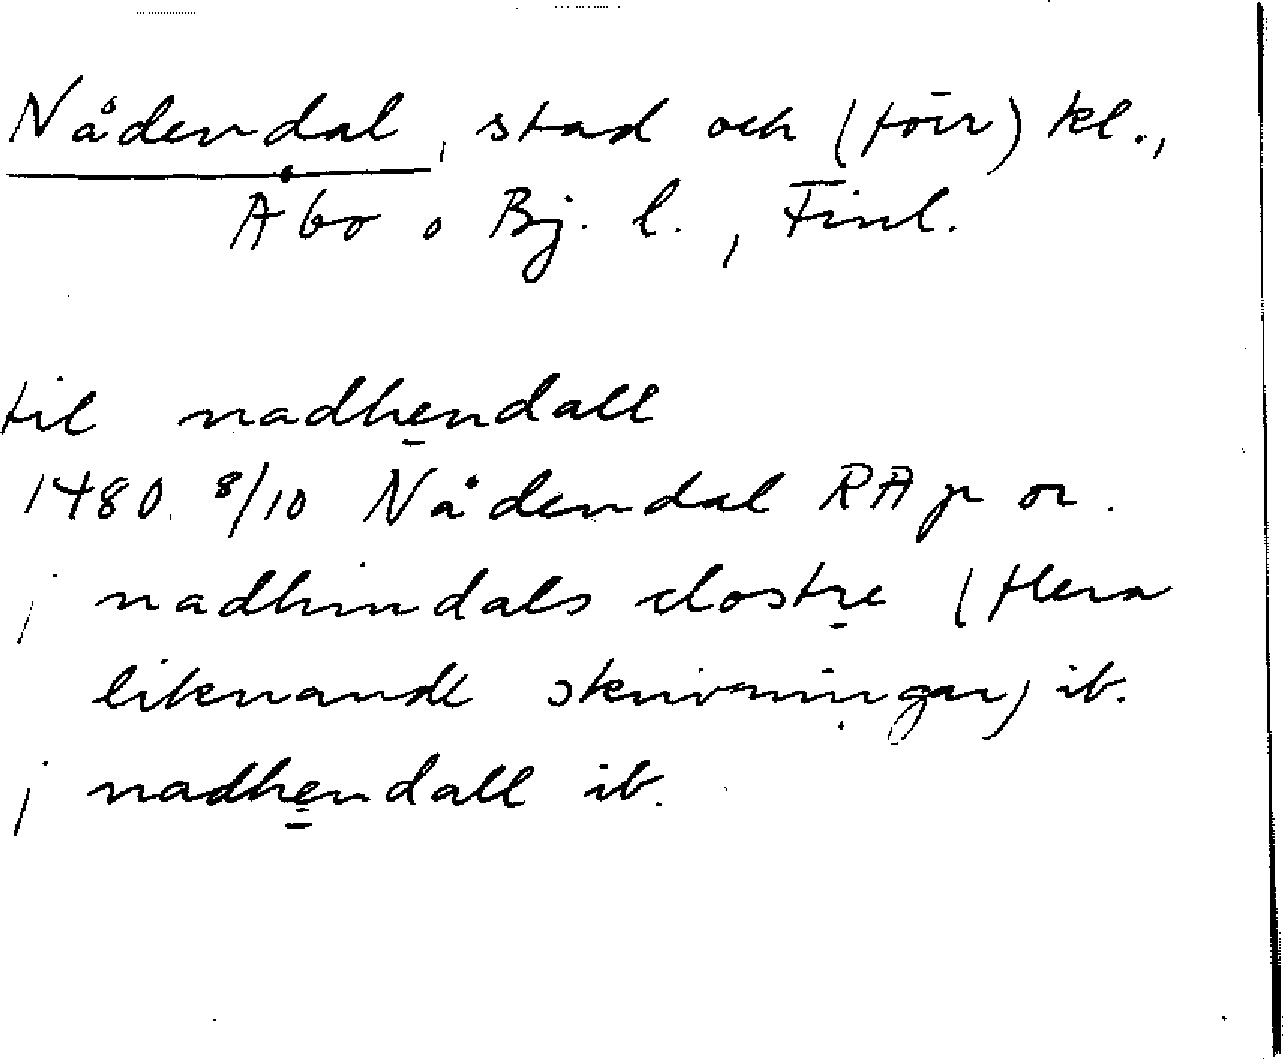 Nådendal, stad och (förr) kl.,
Åbo o Bj. l., Finl.
til nadhendall
1480 8/10 Nådendal RAp or.
j nadhindals clostre (flera
liknande skrivningar) ib.
j nadhendall ib.